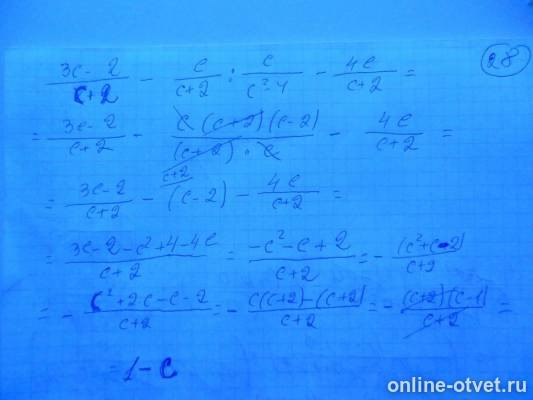 (3c-2)/(c+2) - c/(c+2) : c/(c²-4) - 4c/(c+2) = 28
= (3c-2)/(c+2) - c(c+2)(c-2)/((c+2)·c) - 4c/(c+2) =
= (3c-2)/(c+2) - (c-2) (c+2) - 4c/(c+2) =
= (3c-2-c²+4-4c)/(c+2) = (-c²-c+2)/(c+2) = - (c²+c-2)/(c+2)
= - (c²+2c-c-2)/(c+2) = - (c(c+2)-(c+2))/(c+2) = - (c+2)(c-1)/(c+2) =
= 1-c
online-otvet.ru